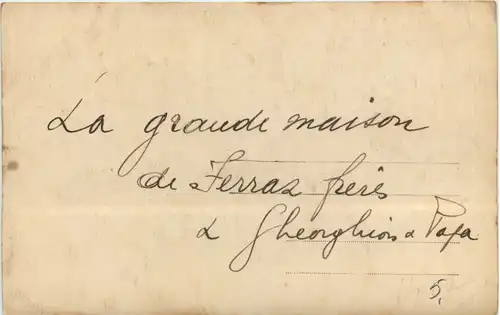 La grande maison
de Ferraz frères
à Gheorghiou à Pafa
5.